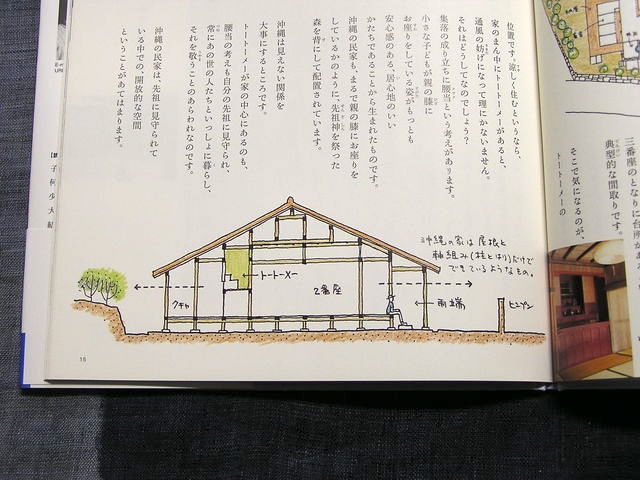 三番座のとなりに台所
典型的な間取りです。
そこで気になるのが、
トートーメーの
位置です。涼しく住むというなら、
家のまん中にトートーメーがあると、
通風の妨げになって理にかないません。
それはどうしてなのでしょう？
集落の成り立ちに腰当という考えがあります。
小さな子どもが親の膝に
お座りをしている姿がもっとも
安心感のある、居心地のいい
かたちであることから生まれたものです。
沖縄の民家も、まるで親の膝にお座りを
しているかのように、先祖神を祭った
森を背にして配置されています。
沖縄は見えない関係を
大事にするところです。
トートーメーが家の中心にあるのも、
腰当の考えも自分の先祖に見守られ、
常にあの世の人たちといっしょに暮らし、
それを敬うことのあらわれなのです。
沖縄の民家は、先祖に見守られて
いる中での開放的な空間
ということがあてはまります。
沖縄の家は屋根と
軸組み（柱とはり）だけで
できているようなもの。
トートーメー
クチャ
2番座
雨端
ヒンプン
16